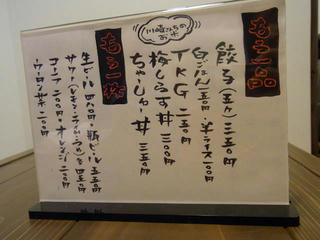 もう一品
川崎みちのお米
餃子(五ケ) 三五〇円
白ごはん 一五〇円・半ライス 一〇〇円
TKG 二五〇円
梅しらす丼 三〇〇円
ちゃーしゅー丼 三五〇円
もう一杯
生ビール 四八〇円・瓶ビール 五五〇円
サワー(レモン・ライム・うめ)各四五〇円
コーラ 二〇〇円・オレンジ 二〇〇円
ウーロン茶 二〇〇円